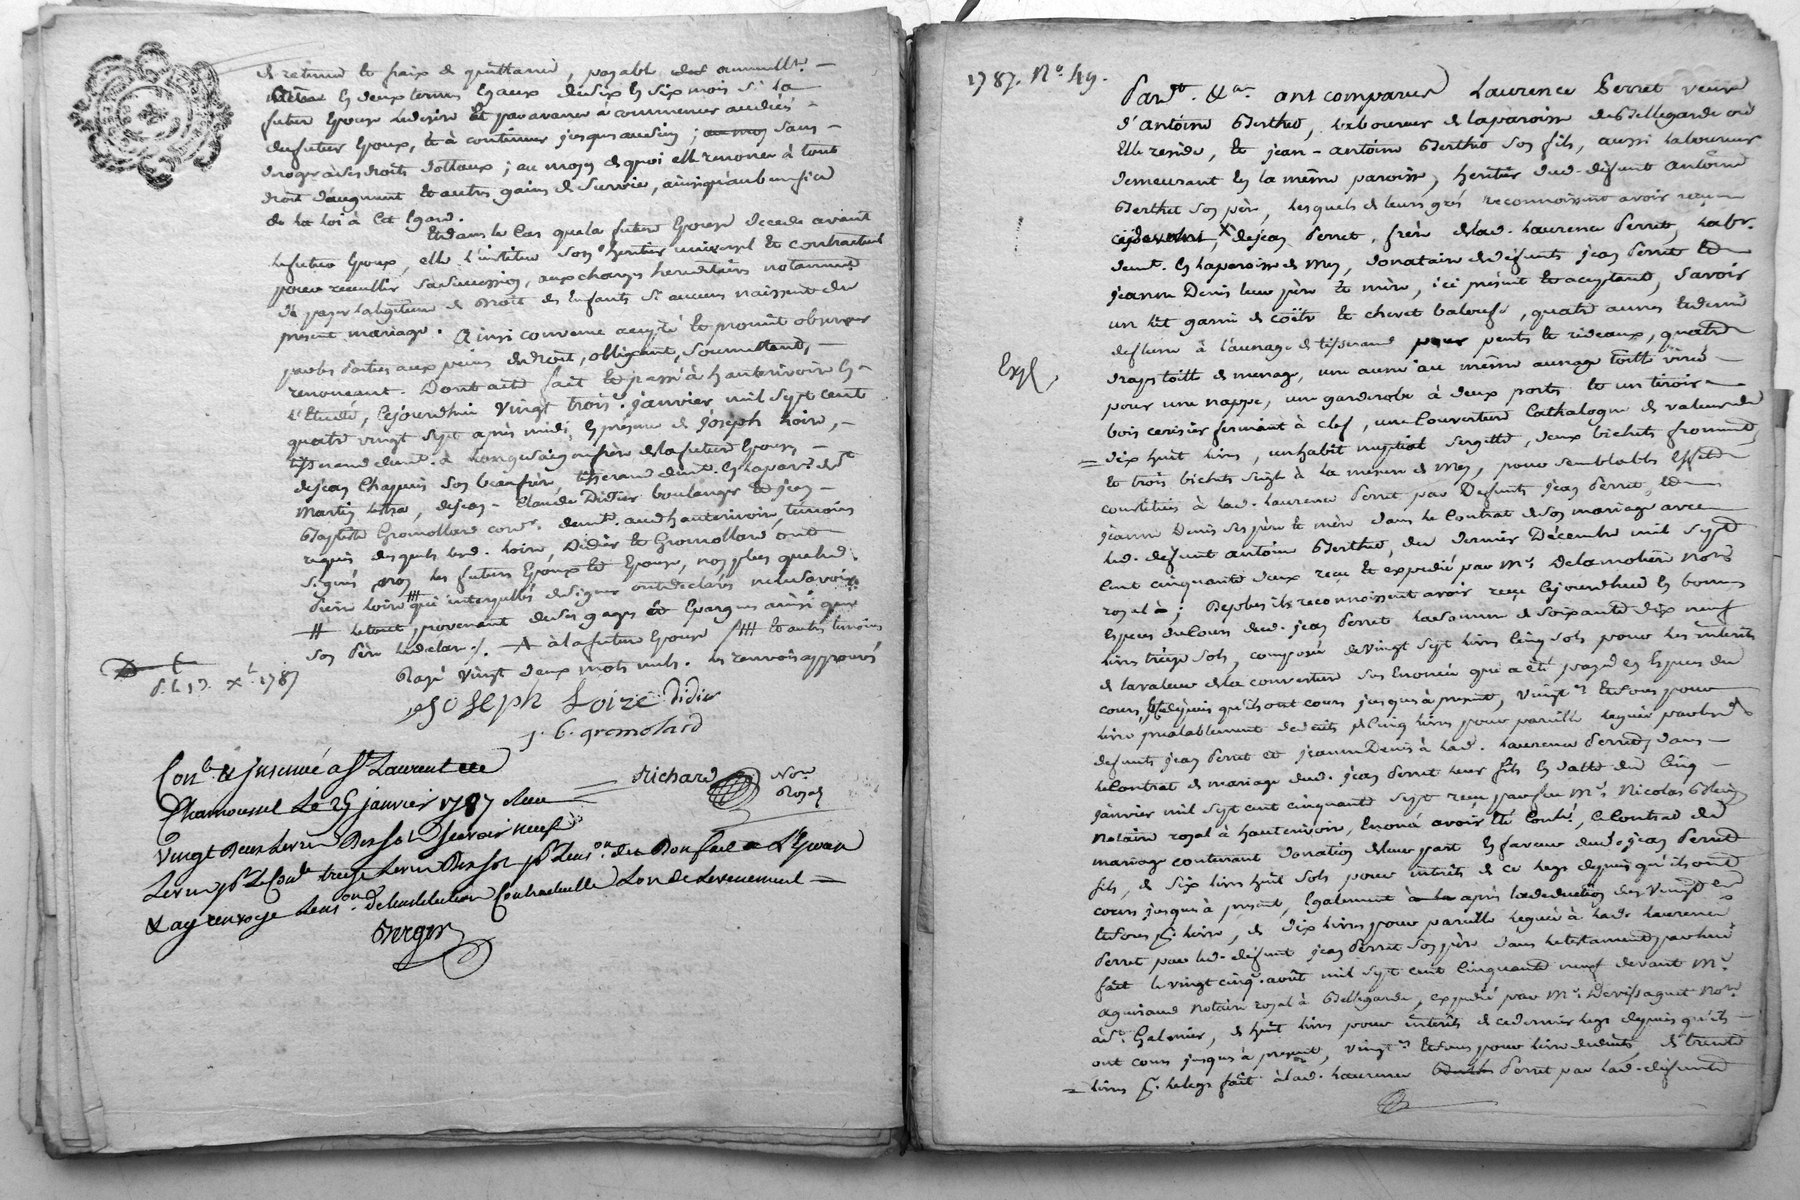 de retenue et fraix de quittance, payable
en deux termes egaux de six en six mois si la
future epouse le desire et par avance à commencer au decès
du futur epoux, et à continuer jusques au sien; sans
droit d'augment et autres gains de survie, ainsi qu'au benefice
de la loi à cet egard.
Et dans le cas que la future epouse decede avant
le futur epoux, elle l'institue son heritier universel et contractuel
pour recueillir sa succession, aux charges hereditaires notamment
de payer la legitime de droit des enfants si aucuns naissent du
present mariage. Ainsi convenu accepté et promit observer
par les parties aux peines de droit, obligeant, soumettant,
renonceant. Dont acte fait et passé à hauterivoire en
l'etude, cejourdhui vingt trois janvier mil sept cent
quatre vingt sept après midi, en presence de joseph Loire,
tisserand demt. à frère de la future epouse
de jean Chapuis son beaufrère, tisserand demt. en la parse. de st
Martin , de jean-Claude Didier boulanger et jean
Baptiste Gromollard demt. aud hauterivoire, temoins
requis desquels led. Loire, Didier et Gromollard ont
signé non les futurs epoux et epouse, non plus que led.
pierre Loire qui interpellés de signer ont declarés ne le savoir
le tout, provenant de ses gages et epargnes ainsi que
son père le declare. à la future epouse et autres temoins
Rayé vingt deux mots nuls. les renvois approuvés
1787
Joseph Loire Didier
j. b. gromolard
Richard Nore. Royal
Con.lé & Insinué à St. Laurent de
Chamousset le 25 janvier 1787 Reçu
vingt deux livres dix sols Sçavoir neuf
Livres pr. le Conle. treize Livres dix sols pr. l'insion. du Don fait à l'Epoux
& ay renvoyé l'insion. de l'institution Contractuelle Lors de l'evenement
Berger
1787. No. 49.
Pardt. &a. ont comparus Laurence Perret veuve
d'antoine Berthet, laboureur de la paroisse de Bellegarde où
elle reside, et jean-antoine Berthet son fils, aussi laboureur
demeurant en la même paroisse, heritier dud. defunt antoine
Berthet son père, lesquels de leurs grés reconnoissent avoir reçu
cydevant, de jean Perret, frère de lad. Laurence Perret, labr.
demt. en la paroisse de Mey, donataire de defunts jean Perret et
jeanne Denis leur père et mère, ici présent et acceptant, savoir
un lit garni de coëtre et chevet , quatre aunes et demie
à l'aunage de tisserand pour pents et rideaux, quatre
draps toille de menage, une aune au même aunage toille
pour une nappe, une garderobe à deux portes et un tiroir
bois cerisier fermant à clef, une couverture Cathalogne de valeur de
dix huit livres, un habit nuptial sergette, deux bichets froment
et trois bichets seigle à la mesure de Mey, pour semblables effets
constitués à lad. Laurence Perret par Defunts jean Perret, et
jeanne Denis ses père et mère dans le Contrat de son mariage avec
led. defunt antoine Berthet, du dernier Décembre mil sept
cent cinquante deux reçu et expedié par Me. Delamotière nore.
royal à ; Deplus ils reconnoissent avoir reçu cejourdhui en bonnes
especes du cours dud. jean Perret la somme de soixante dix neuf
livres treize sols, composée de vingt sept livres cinq sols pour les interêts
de la valeur de la couverture sus enoncée qui a été payée en especes du
cours, depuis qu'ils ont cours jusques à present, vingtes. et sous pour
livre prealablement deduits de cinq livres pour pareille leguée par les
defunts jean Perret et jeanne Denis à lad. Laurence Perret, dans
le Contrat de mariage dud. jean Perret leur fils en datte du cinq
janvier mil sept cent cinquante sept reçu par feu Me. Nicolas
notaire royal à hauterivoire, enoncé avoir été conlé, ce Contrat de
mariage contenant donation de leur part en faveur dud. jean Perret
fils, de six livres huit sols pour interêts de ce legs depuis qu'ils ont
cours jusques à present, egalement après la deduction des vingtes.
et sous p. livre, de dix livres pour pareille leguée à lad. Laurence
Perret par led. defunt jean Perret son père dans le testament par lui
fait le vingt cinq août mil sept cent cinquante neuf devant Me.
aguiraud notaire royal à Bellegarde, expedié par Me. Devissaguet nore.
à st. Galmier, de huit livres pour interêts de ce dernier legs depuis qu'ils
ont cours jusqu'à present, vingtes. et sous pour livre deduits de trente
livres p. le legs fait à lad. Laurence Perret par lad. defunte
Expé.